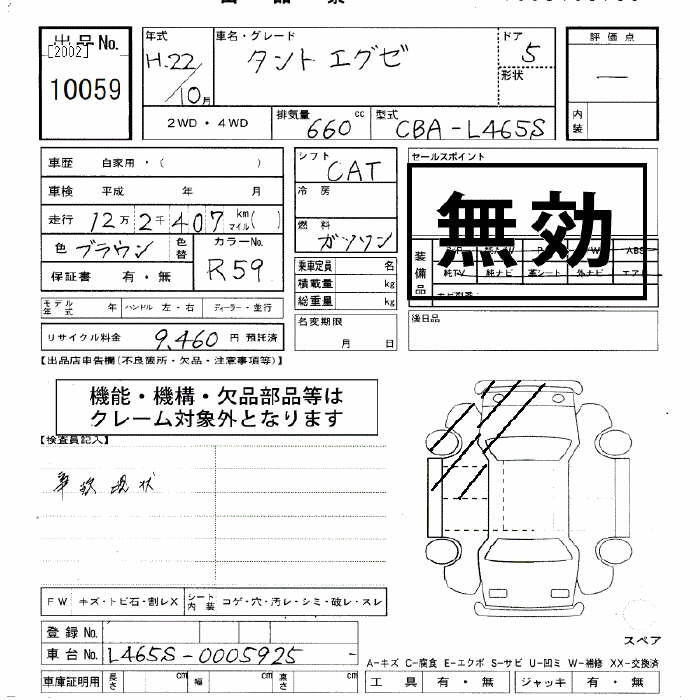 出品票
出品No.
[2002]
10059
年式
H.22/10月
車名・グレード
タント エグゼ
ドア
5
形状
評価点
―
内装
2WD・4WD
排気量 660 cc
型式 CBA-L465S
車歴 自家用・( )
車検 平成 年 月
走行 12万2千407 km マイル( )
色 ブラウン 色替
カラーNo. R59
保証書 有・無
モデル年式 年 ハンドル 左・右 ディーラー・並行
リサイクル料金 9,460 円 預託済
シフト CAT
冷房
燃料 ガソリン
乗車定員 名
積載量 kg
総重量 kg
名変期限
月 日
セールスポイント
無効
装備品
ABS
純TV 純ナビ 革シート 外ナビ エアB
後日品
【出品店申告欄(不良箇所・欠品・注意事項等)】
機能・機構・欠品部品等は
クレーム対象外となります
【検査員記入】
事故現状
FW キズ・トビ石・割レX シート内装 コゲ・穴・汚レ・シミ・破レ・スレ
登録No.
車台No. L465S-0005925 -
車庫証明用 長さ cm 幅 cm 高さ cm
スペア
A-キズ C-腐食 E-エクボ S-サビ U-凹ミ W-補修 XX-交換済
工具 有・無 ジャッキ 有・無